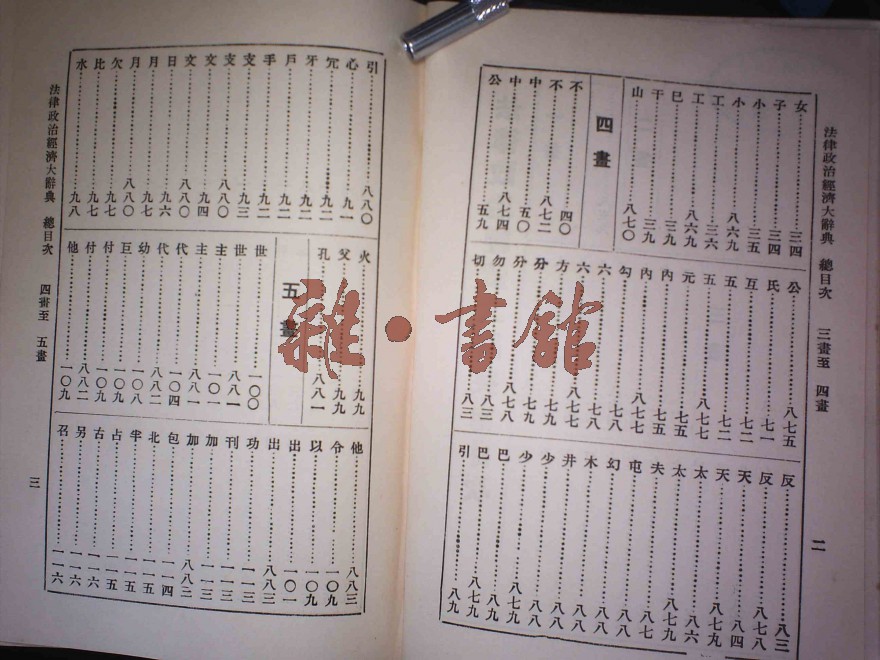 法律政治經濟大辭典 總目次 三畫至 四畫
女……三四
子……三四
小……三五
小……八六九
工……三六
工……八六九
巳……三九
干……三九
山……八七〇
四畫
不……四〇
不……八七二
中……五〇
中……八七四
公……五九
公……八七五
氏……七一
互……七二
五……七二
五……八七七
元……七五
內……七五
內……八七七
勾……七八
六……七八
六……八七七
方……七八
分……七九
分……八七八
勿……八三
切……八三
反……八三
反……八七八
天……八四
天……八七九
太……八六
太……八七九
夫……八七
屯……八八
幻……八八
木……八八
井……八八
少……八八
少……八七九
巴……八八
巴……八七九
引……八九
二
引……八八〇
心……九一
冗……九二
牙……九二
戶……九二
手……九二
支……九三
支……八八〇
文……九四
文……八八〇
日……九六
月……九七
月……八八〇
欠……九七
比……九七
水……九八
火……九九
父……九九
孔……八八一
五畫
世……一〇〇
世……八八一
主……一〇一
主……八八一
代……一〇四
代……八八二
幼……一〇八
巨……一〇九
付……一〇九
付……八八二
他……一〇九
他……八八三
令……一〇九
以……一〇九
出……一〇一
出……八八三
功……一一三
刊……一一三
加……一一三
加……八八二
包……一一四
北……一一五
半……一一五
占……一一五
古……一一六
另……一一六
召……一一六
法律政治經濟大辭典 總目次 四畫至 五畫
三
雜·書館